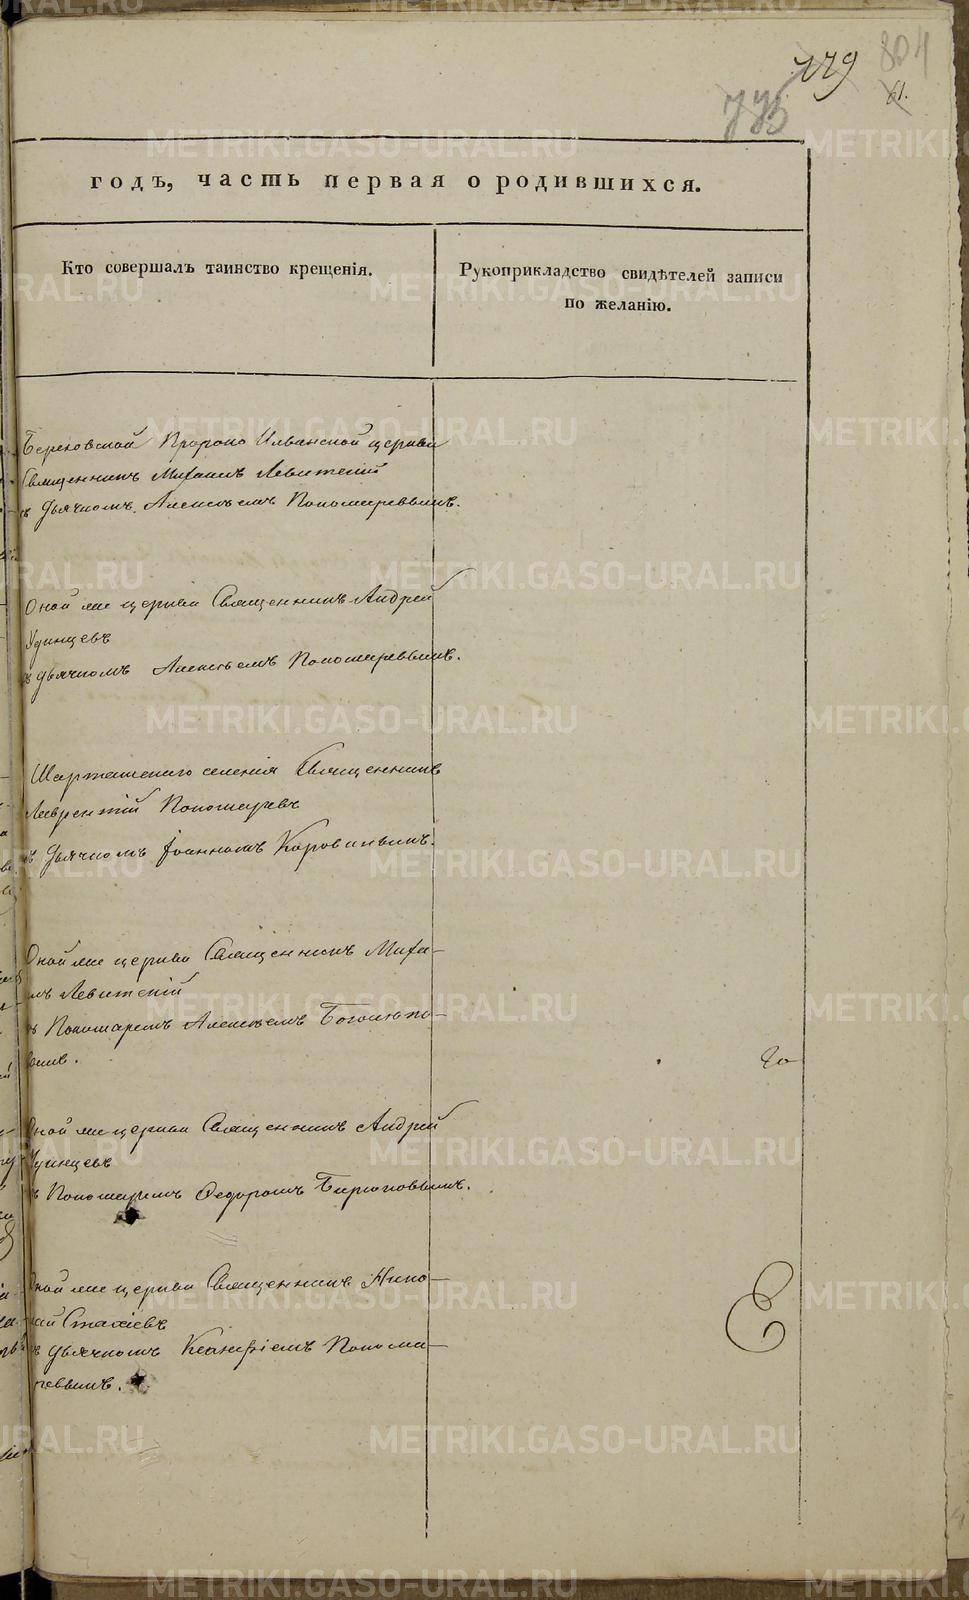 179
804
775
61.
годъ, часть первая о родившихся.
Кто совершалъ таинство крещенія.
Рукоприкладство свидѣтелей записи
по желанію.
Березовской Пророко Ильинской церкви
Священникъ Михаилъ Левитскій
съ Дьячкомъ Алексѣемъ Пономаревымъ.
Оной же церкви Священникъ Андрей
Удинцевъ
съ дьячкомъ Алексѣемъ Пономаревымъ.
Шарташскаго селенія Священникъ
Лаврентій Пономаревъ
съ Дьячкомъ Іоанномъ Коровинымъ.
Оной же церкви Священникъ Миха-
илъ Левитскій
съ Пономаремъ Алексѣемъ Боголюпо-
вымъ.
Оной же церкви Священникъ Андрей
Удинцевъ
съ Пономаремъ Ѳедоромъ Бирюковымъ.
Оной же церкви Священникъ Нико-
лай Стахіевъ
съ дьячкомъ Пома-
ревымъ.
METRIKI.GASO-URAL.RU